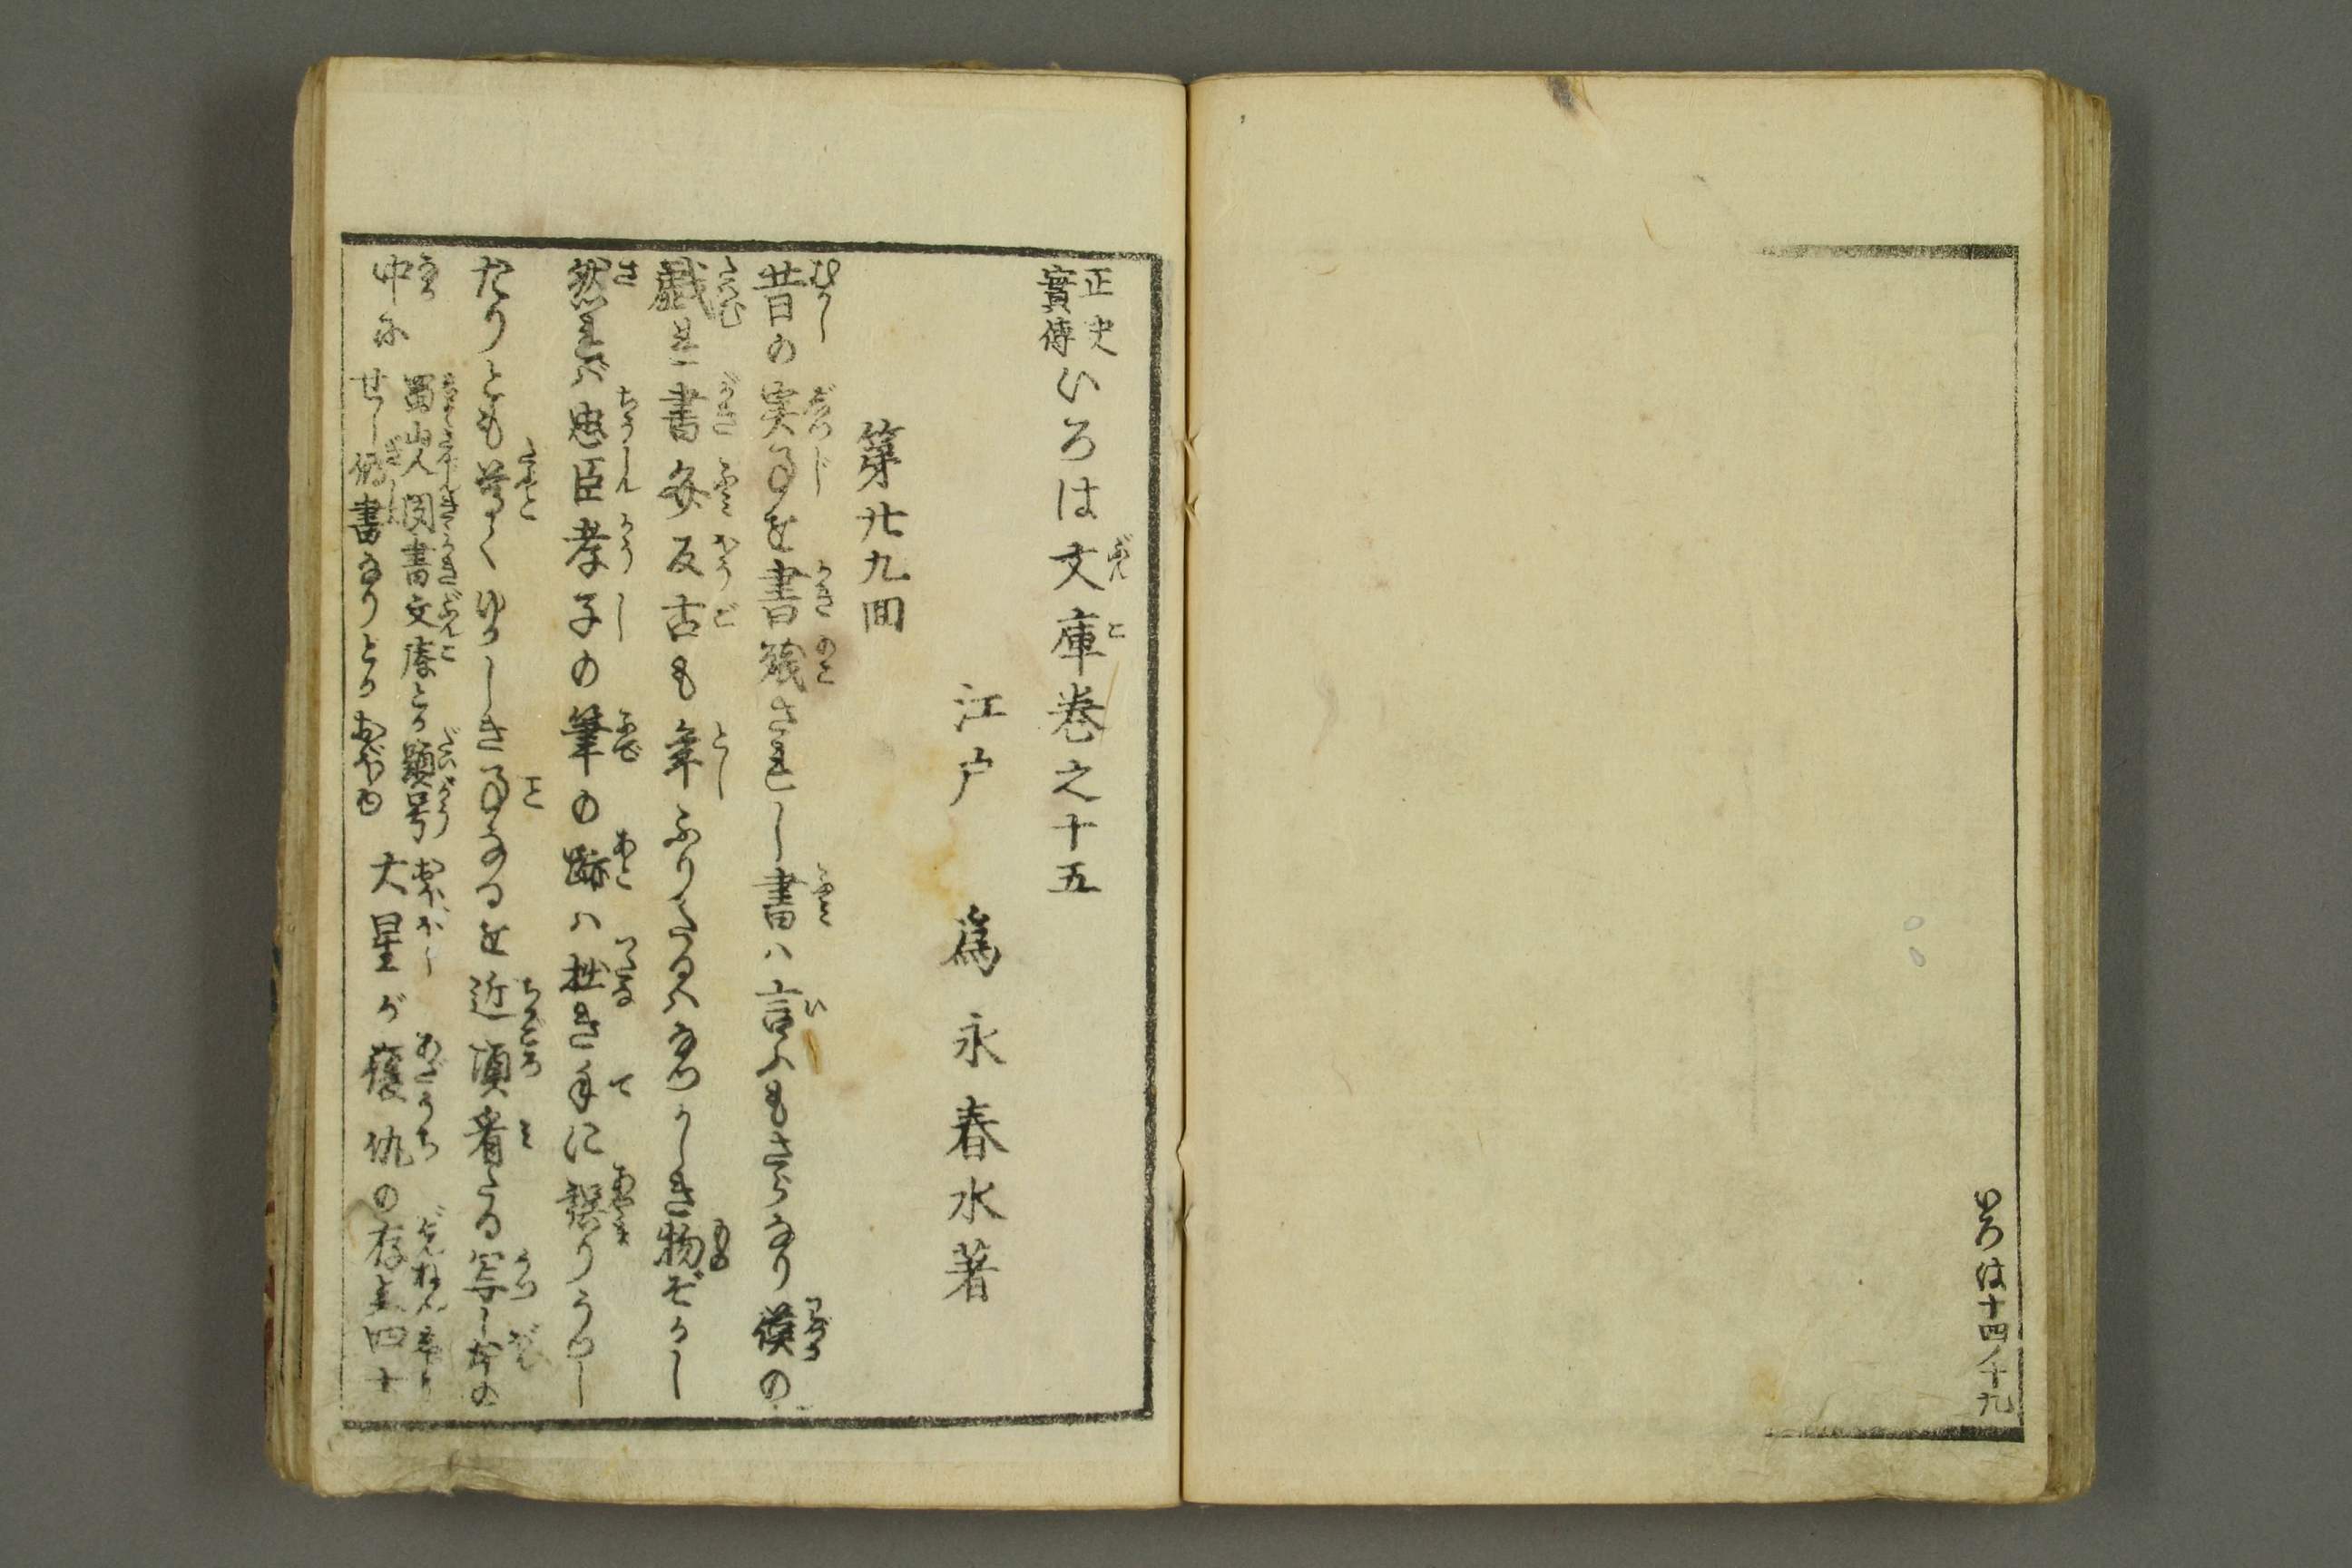 いろは十四ノ十九
正史實傳いろは文庫巻之十五
江戸 為永春水著
第廿九回
昔の実事を書残されし書ハ言ふもさらなり僕の
戯れ書毎反古も年ふりたるハなつかしき物ぞかし
然れバ忠臣孝子の筆の跡ハ拙き手に誤りうつし
たりとも尊くゆかしき事なるを近頃看たる写し本の
中に
蜀山人聞書文庫とか題号
せし偽書なりとかおぼゆ
大星が復仇の存念四十